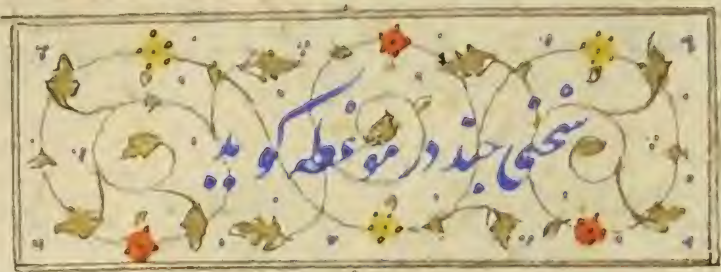 سخنی چند در موعظه کوید